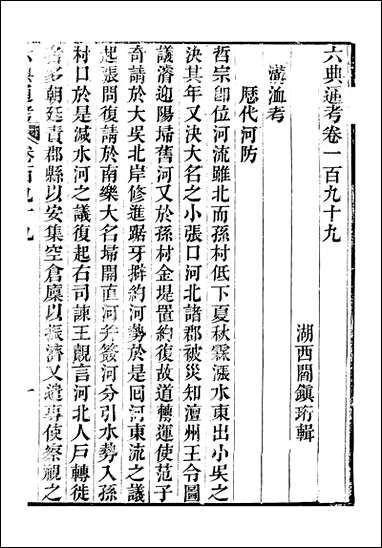 六典通考卷一百九十九
湖西閻鎮珩輯
溝洫考
歷代河防
哲宗卽位河流雖北而孫村低下夏秋霖漲水東出小吳之
決其年又決大名之小張口河北諸郡被災知澶州王令圖
議濬迎陽埽舊河又於孫村金堤置約復故道轉運使范子
奇請於大吳北岸修進鋸牙擗約河勢於是回河東流之議
起張問復請於南樂大名埽開直河并簽河分引水勢入孫
村口於是減水河之議復起右司諫王覿言河北人戶轉徙
者多朝廷責郡縣以安集空倉廩以振濟又遣專使察視之
六典通考 卷百九十九 一